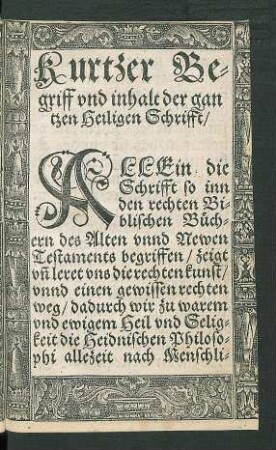 Kurtzer Be-
griff vnd inhalt der gan
tzen Heiligen Schrifft/
ALLEin die
Schrifft so inn
den rechten Bi-
blischen Büch-
ern des Alten vnnd Newen
Testaments begriffen/ zeigt
vñ leret vns die rechten kunst/
vnnd einen gewissen rechten
weg/ dadurch wir zu warem
vnd ewigem Heil vnd Selig-
keit die Heidnischen Philoso-
phi allezeit nach Menschli-